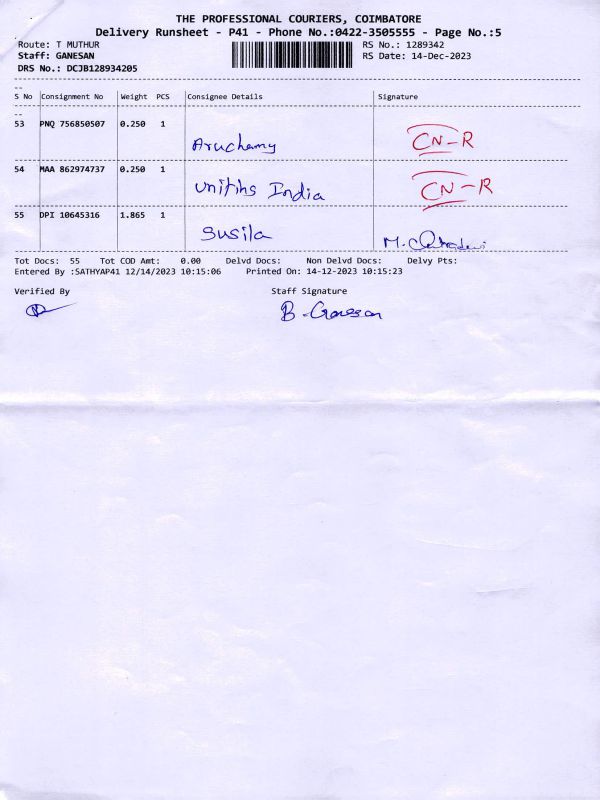 THE PROFESSIONAL COURIERS, COIMBATORE
Delivery Runsheet - P41 - Phone No.:0422-3505555 - Page No.:5
Route: T MUTHUR RS No.: 1289342
Staff: GANESAN RS Date: 14-Dec-2023
DRS No.: DCJB128934205
S No Consignment No Weight PCS Consignee Details Signature
53 PNQ 756850507 0.250 1
Aruchamy CN-R
54 MAA 862974737 0.250 1
India CN-R
55 DPI 10645316 1.865 1
Susila
Tot Docs: 55 Tot COD Amt: 0.00 Delvd Docs: Non Delvd Docs: Delvy Pts:
Entered By :SATHYAP41 12/14/2023 10:15:06 Printed On: 14-12-2023 10:15:23
Verified By Staff Signature
B. Ganesan